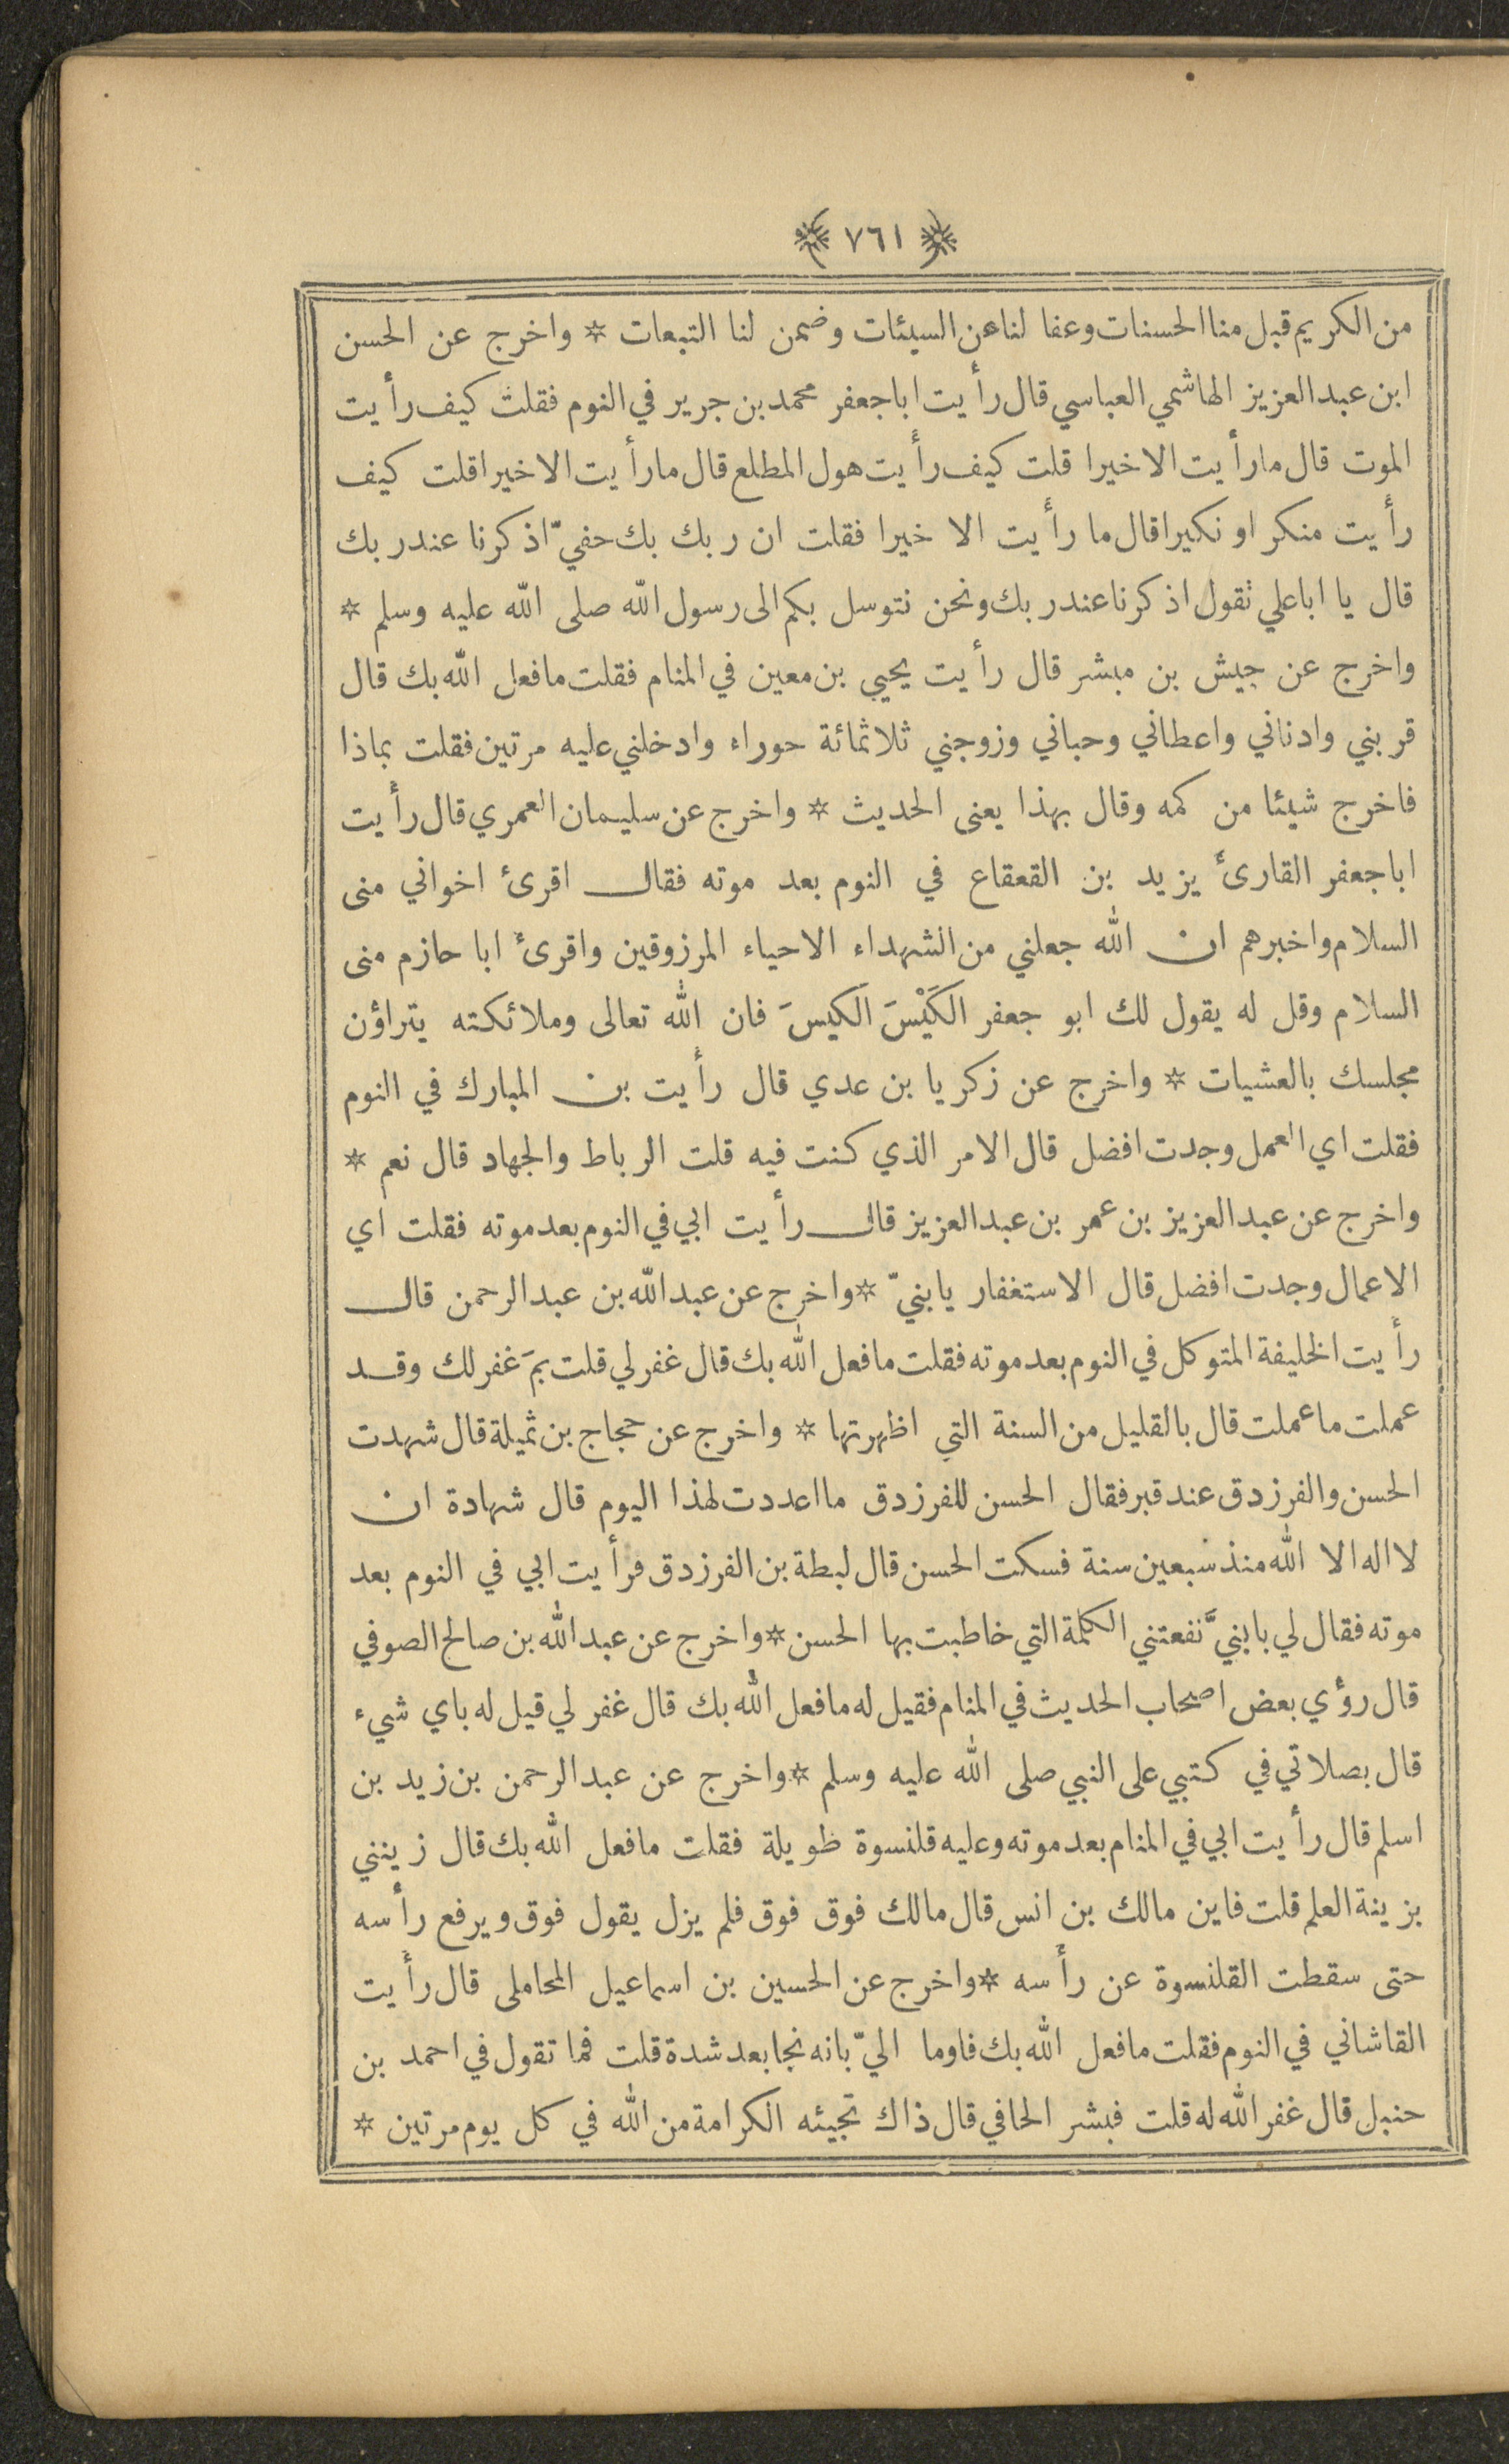 ٧٦١
من الكريم قبل منا الحسنات وعفا لنا عن السيئات وضمن لنا التبعات * واخرج عن الحسن
ابن عبد العزيز الهاشمي العباسي قال رأيت ابا جعفر محمد بن جرير في النوم فقلت كيف رأيت
الموت قال ما رأيت الا خيرا قلت كيف رأيت هول المطلع قال ما رأيت الا خيرا قلت كيف
رأيت منكر او نكيرا قال ما رأيت الا خيرا فقلت ان ربك بك حفيّ اذكرنا عند ربك
قال يا ابا علي تقول اذكرنا عند ربك ونحن نتوسل بكم الى رسول الله صلى الله عليه وسلم *
واخرج عن جيش بن مبشر قال رأيت يحيي بن معين في المنام فقلت ما فعل الله بك قال
قربني وادناني واعطاني وحباني وزوجني ثلاثمائة حوراء وادخلني عليه مرتين فقلت بماذا
فاخرج شيئا من كمه وقال بهذا يعنى الحديث * واخرج عن سليمان العمري قال رأيت
ابا جعفر القارئ يزيد بن القعقاع في النوم بعد موته فقال اقرئ اخواني منى
السلام واخبرهم ان الله جعلني من الشهداء الاحياء المرزوقين واقرئ ابا حازم منى
السلام وقل له يقول لك ابو جعفر الكَيْسَ الكيسَ فان الله تعالى وملائكته يتراؤن
مجلسك بالعشيات * واخرج عن زكريا بن عدي قال رأيت بن المبارك في النوم
فقلت اي العمل وجدت افضل قال الامر الذي كنت فيه قلت الرباط والجهاد قال نعم *
واخرج عن عبد العزيز بن عمر بن عبد العزيز قال رأيت ابي في النوم بعد موته فقلت اي
الاعمال وجدت افضل قال الاستغفار يا بنيّ * واخرج عن عبد الله بن عبد الرحمن قال
رأيت الخليفة المتوكل في النوم بعد موته فقلت ما فعل الله بك قال غفر لي قلت بمَ غفر لك وقد
عملت ما عملت قال بالقليل من السنة التي اظهرتها * واخرج عن حجاج بن ثميلة قال شهدت
الحسن والفرزدق عند قبر فقال الحسن للفرزدق ما اعددت لهذا اليوم قال شهادة ان
لا اله الا الله منذ سبعين سنة فسكت الحسن قال لبطة بن الفرزدق فرأيت ابي في النوم بعد
موته فقال لي يا بنيَّ نفعتني الكلمة التي خاطبت بها الحسن * واخرج عن عبد الله بن صالح الصوفي
قال رؤي بعض اصحاب الحديث في المنام فقيل له ما فعل الله بك قال غفر لي قيل له باي شيء
قال بصلاتي في كتبي على النبي صلى الله عليه وسلم * واخرج عن عبد الرحمن بن زيد بن
اسلم قال رأيت ابي في المنام بعد موته وعليه قلنسوة طويلة فقلت ما فعل الله بك قال زينني
بزينة العلم قلت فاين مالك بن انس قال مالك فوق فوق فلم يزل يقول فوق ويرفع رأسه
حتى سقطت القلنسوة عن رأسه * واخرج عن الحسين بن اسماعيل المحاملى قال رأيت
القاشاني في النوم فقلت ما فعل الله بك فاوما اليّ بانه نجا بعد شدة قلت فما تقول في احمد بن
حنبل قال غفر الله له قلت فبشر الحافي قال ذاك تجيئه الكرامة من الله في كل يوم مرتين *